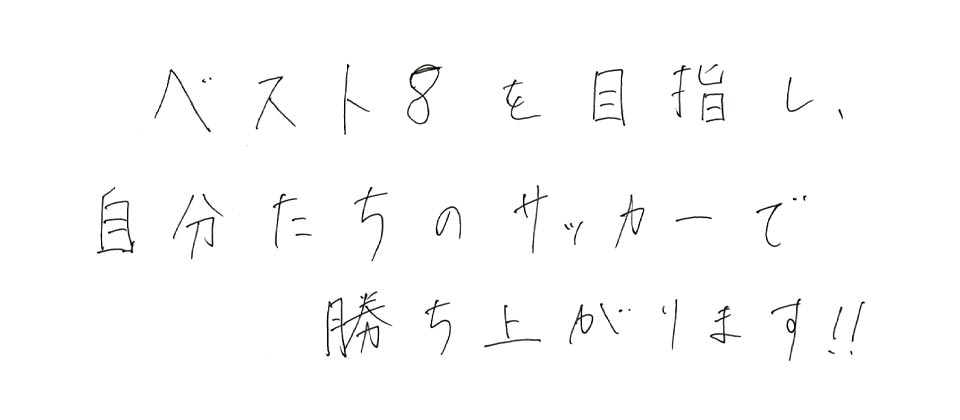 ベスト8を目指し、
自分たちのサッカーで
勝ち上がります!!